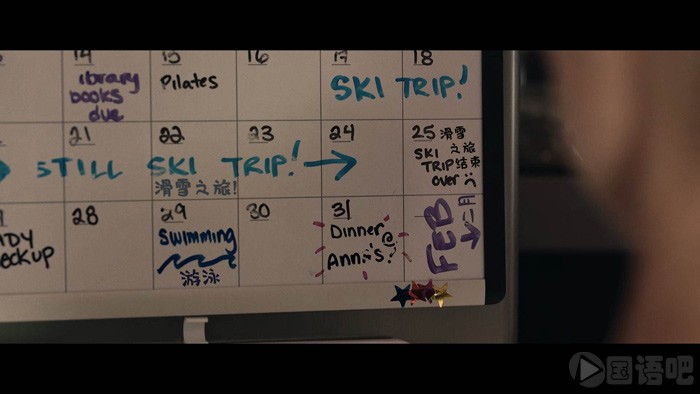 14 15 16 17 18
library
books
due
Pilates
SKI TRIP!
21 22 23 24 25
STILL SKI TRIP!
滑雪之旅!
滑雪
之旅
结束
SKI
TRIP
over
28 29 30 31
Swimming
游泳
Dinner
@
Ann's!
FEB
二月
国语吧